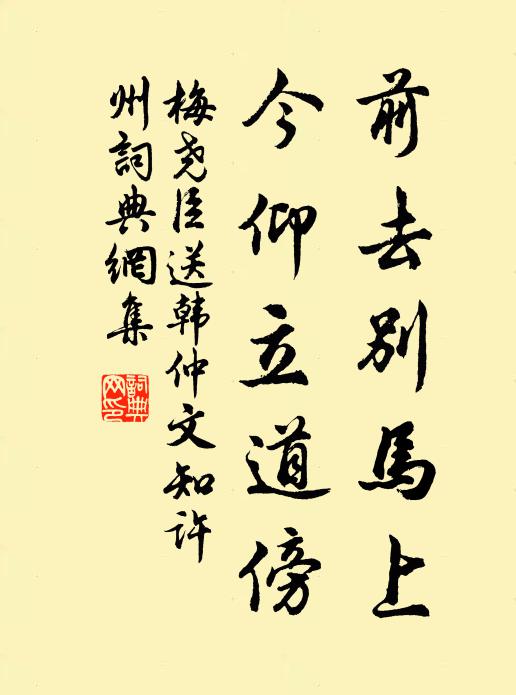 前去别馬上
今仰立道傍
梅尧臣送韩仲文知许
州詞典網集
詞典
网印